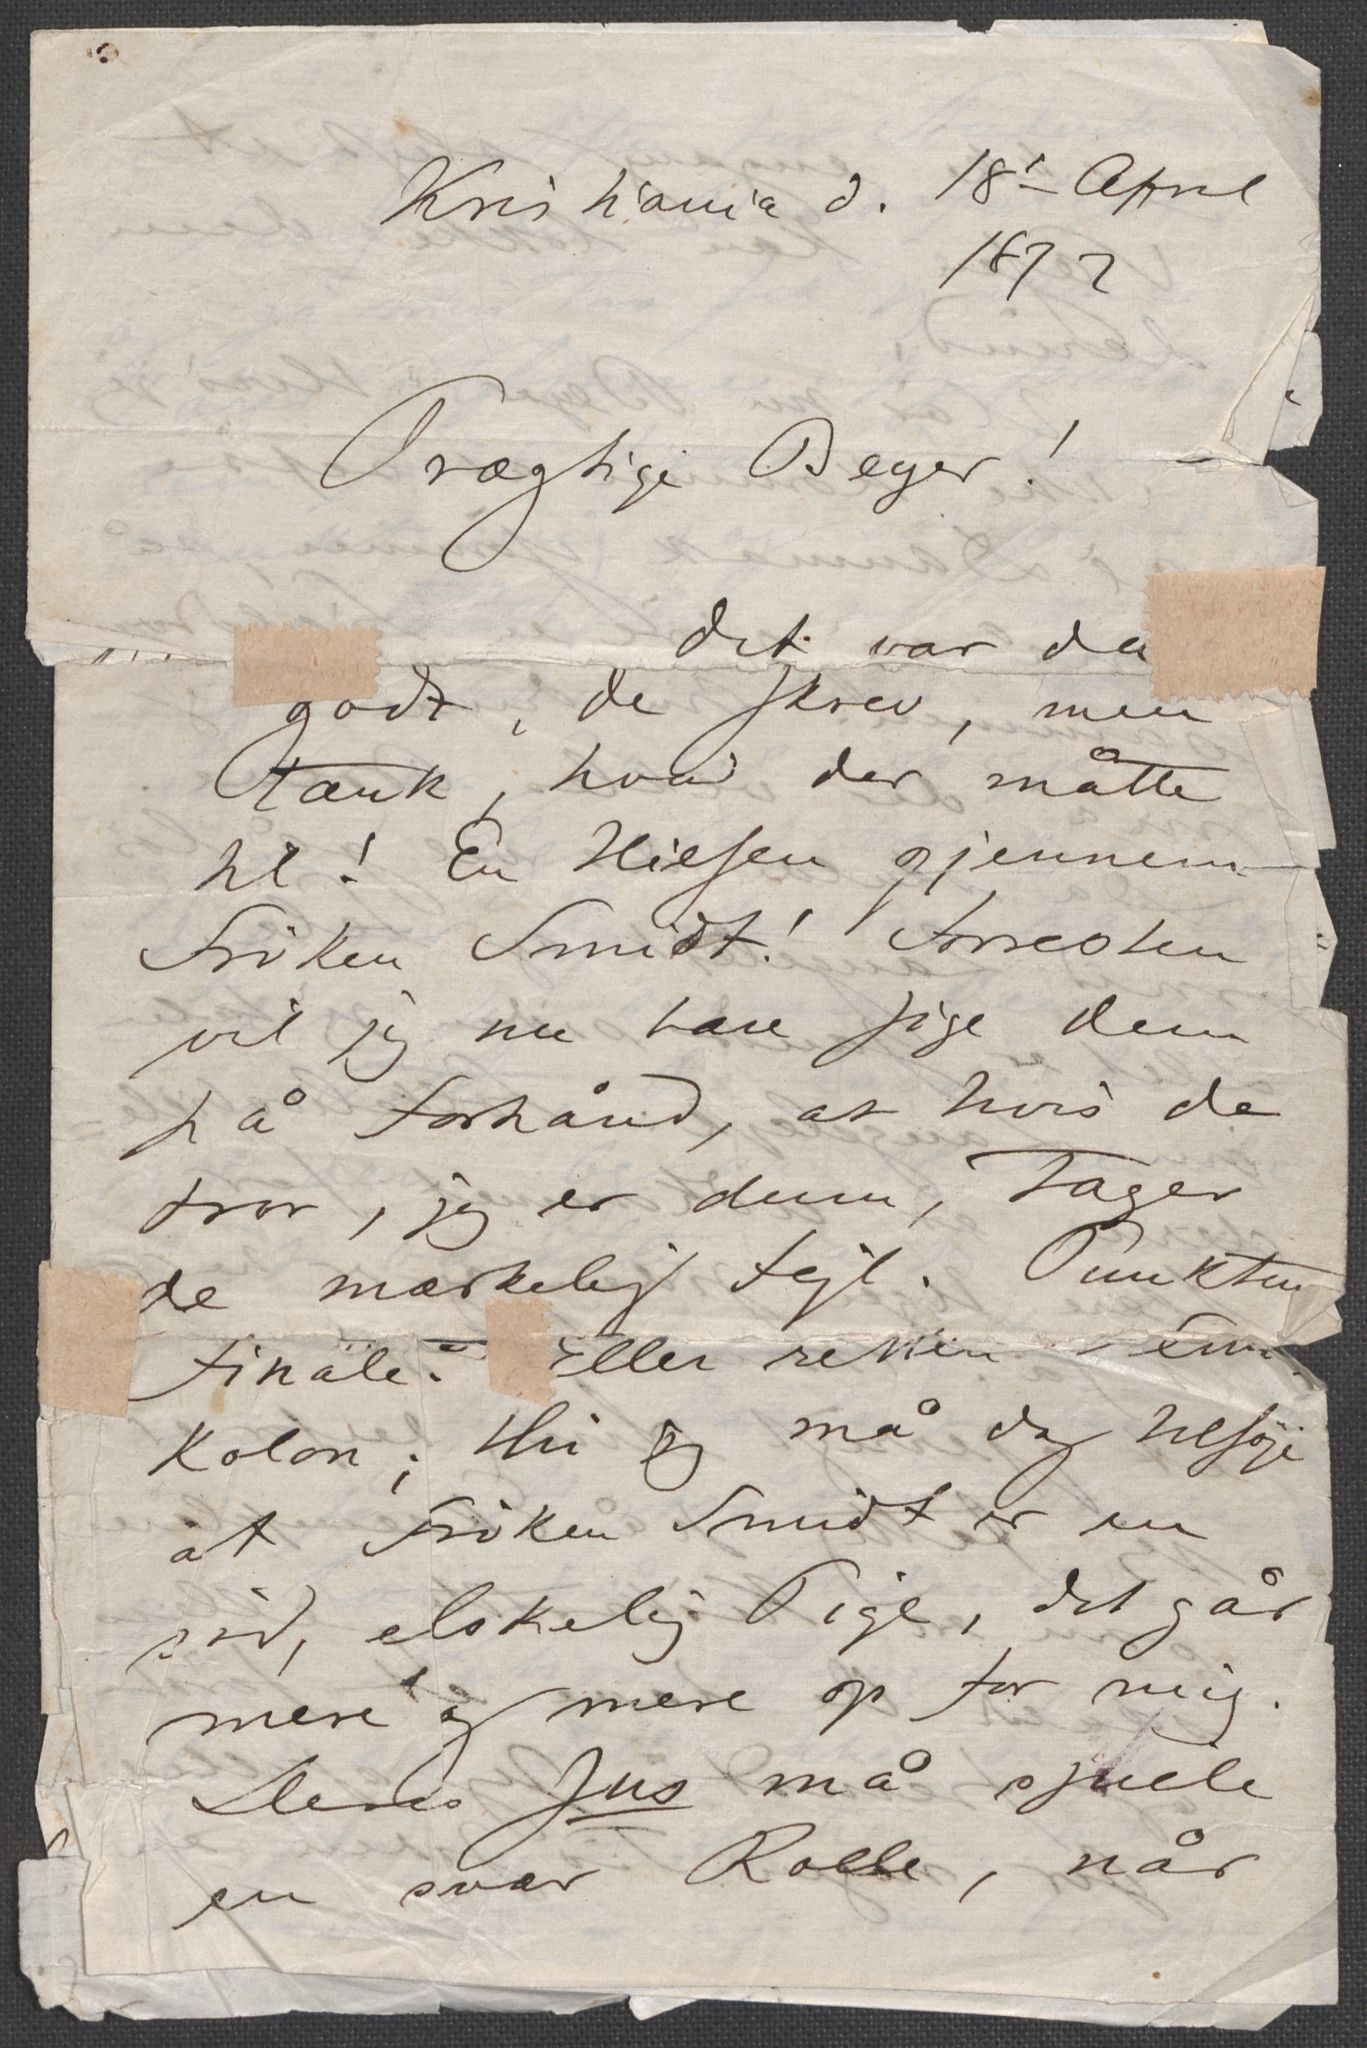 Kristiania d. 18' April
1872
Prægtige Beyer!
det var da
godt, de skrev, men
tænk, hvad der måtte
til! En Hilsen gjennem
Fröken Smidt! Forresten
vil jeg nu bare sige dem
på Forhånd, at hvis de
tror, jeg er dum, tager
de mærkelig fejl. Punktum
finale. Eller rettere Semi
kolon; thi jeg må dog tilföje
at Fröken Smidt er en
söd, elskelig Pige, det går
mere og mere op for mig.
Deres Jus må spille
en svær Rolle, når